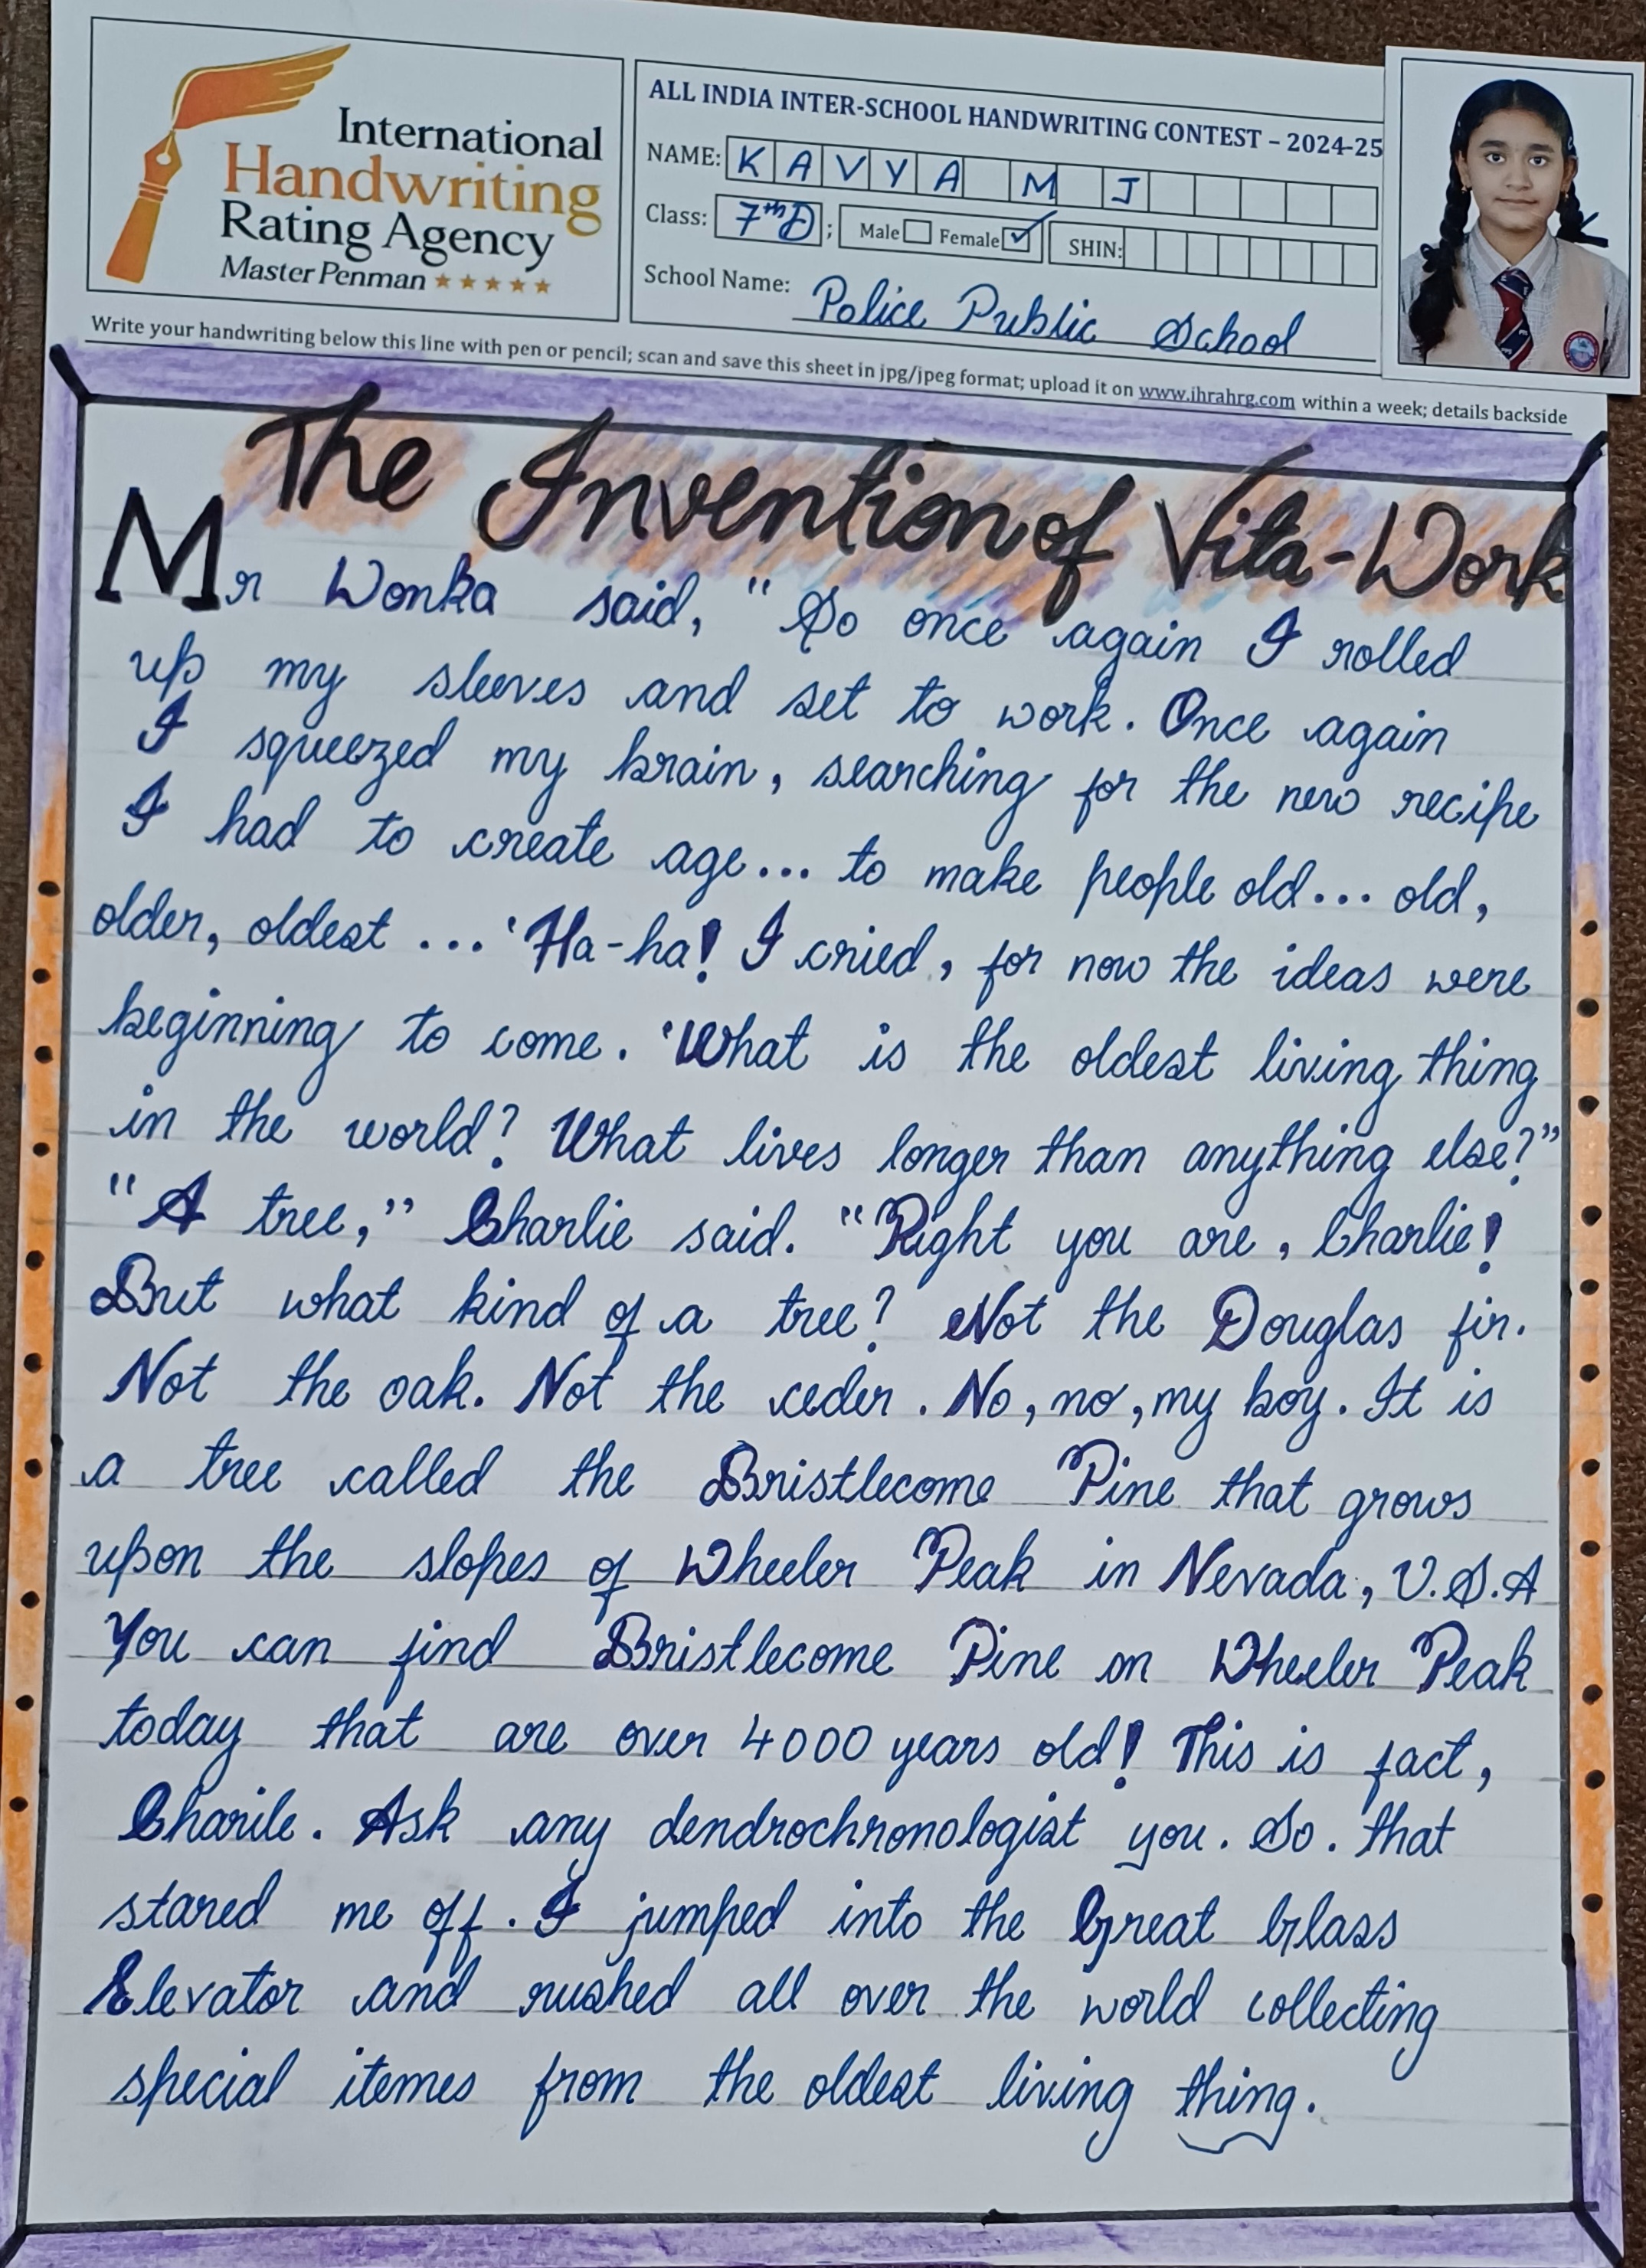 International
Handwriting
Rating Agency
Master Penman ★★★★★
ALL INDIA INTER-SCHOOL HANDWRITING CONTEST – 2024-25
NAME: KAVYA M J
Class: 7th D ; Male Female ✓ SHIN:
School Name: Police Public School
Write your handwriting below this line with pen or pencil; scan and save this sheet in jpg/jpeg format; upload it on www.ihrahrg.com within a week; details backside
The Invention of Vita-Work
Mr Wonka said, "So once again I rolled
up my sleeves and set to work. Once again
I squeezed my brain, searching for the new recipe
I had to create age... to make people old... old,
older, oldest ... 'Ha-ha! I cried, for now the ideas were
beginning to come. 'What is the oldest living thing
in the world? What lives longer than anything else?"
"A tree," Charlie said. "Right you are, Charlie!
But what kind of a tree? Not the Douglas fir.
Not the oak. Not the ceder. No, no, my boy. It is
a tree called the Bristlecome Pine that grows
upon the slopes of Wheeler Peak in Nevada, U.S.A
You can find Bristlecome Pine on Wheeler Peak
today that are over 4000 years old! This is fact,
Charile. Ask any dendrochronologist you. So. that
stared me off. I jumped into the Great Glass
Elevator and rushed all over the world collecting
special itemes from the oldest living thing.